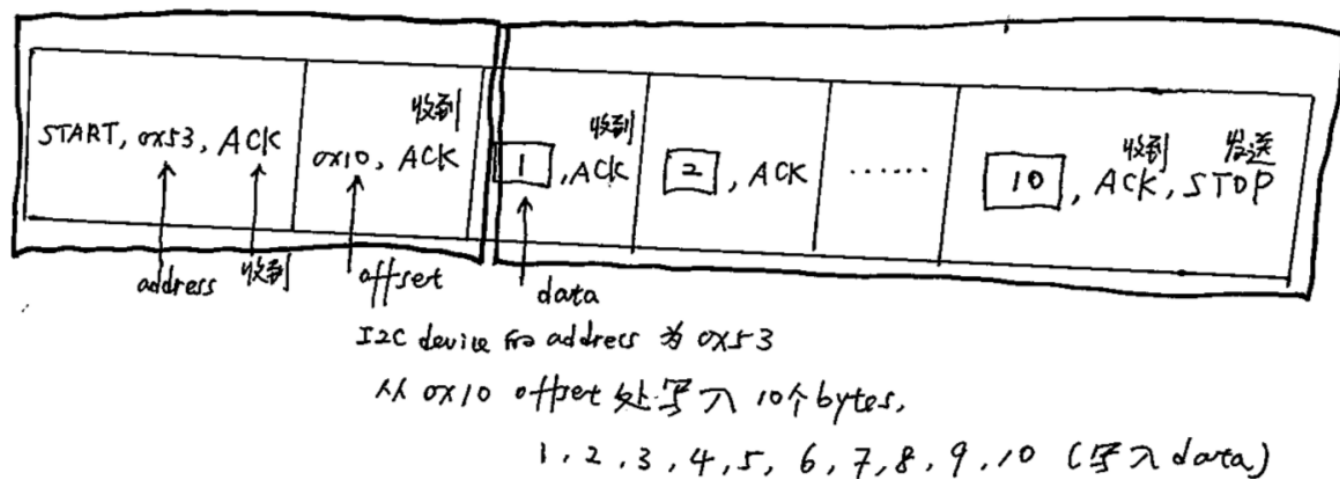 收到 收到 收到 发送
START, 0x53, ACK 0x10, ACK 1, ACK 2, ACK ...... 10, ACK, STOP
address 收到 offset data
I2C device 的 address 为 0x53
从 0x10 offset 处写入 10个bytes,
1, 2, 3, 4, 5, 6, 7, 8, 9, 10 (写入data)